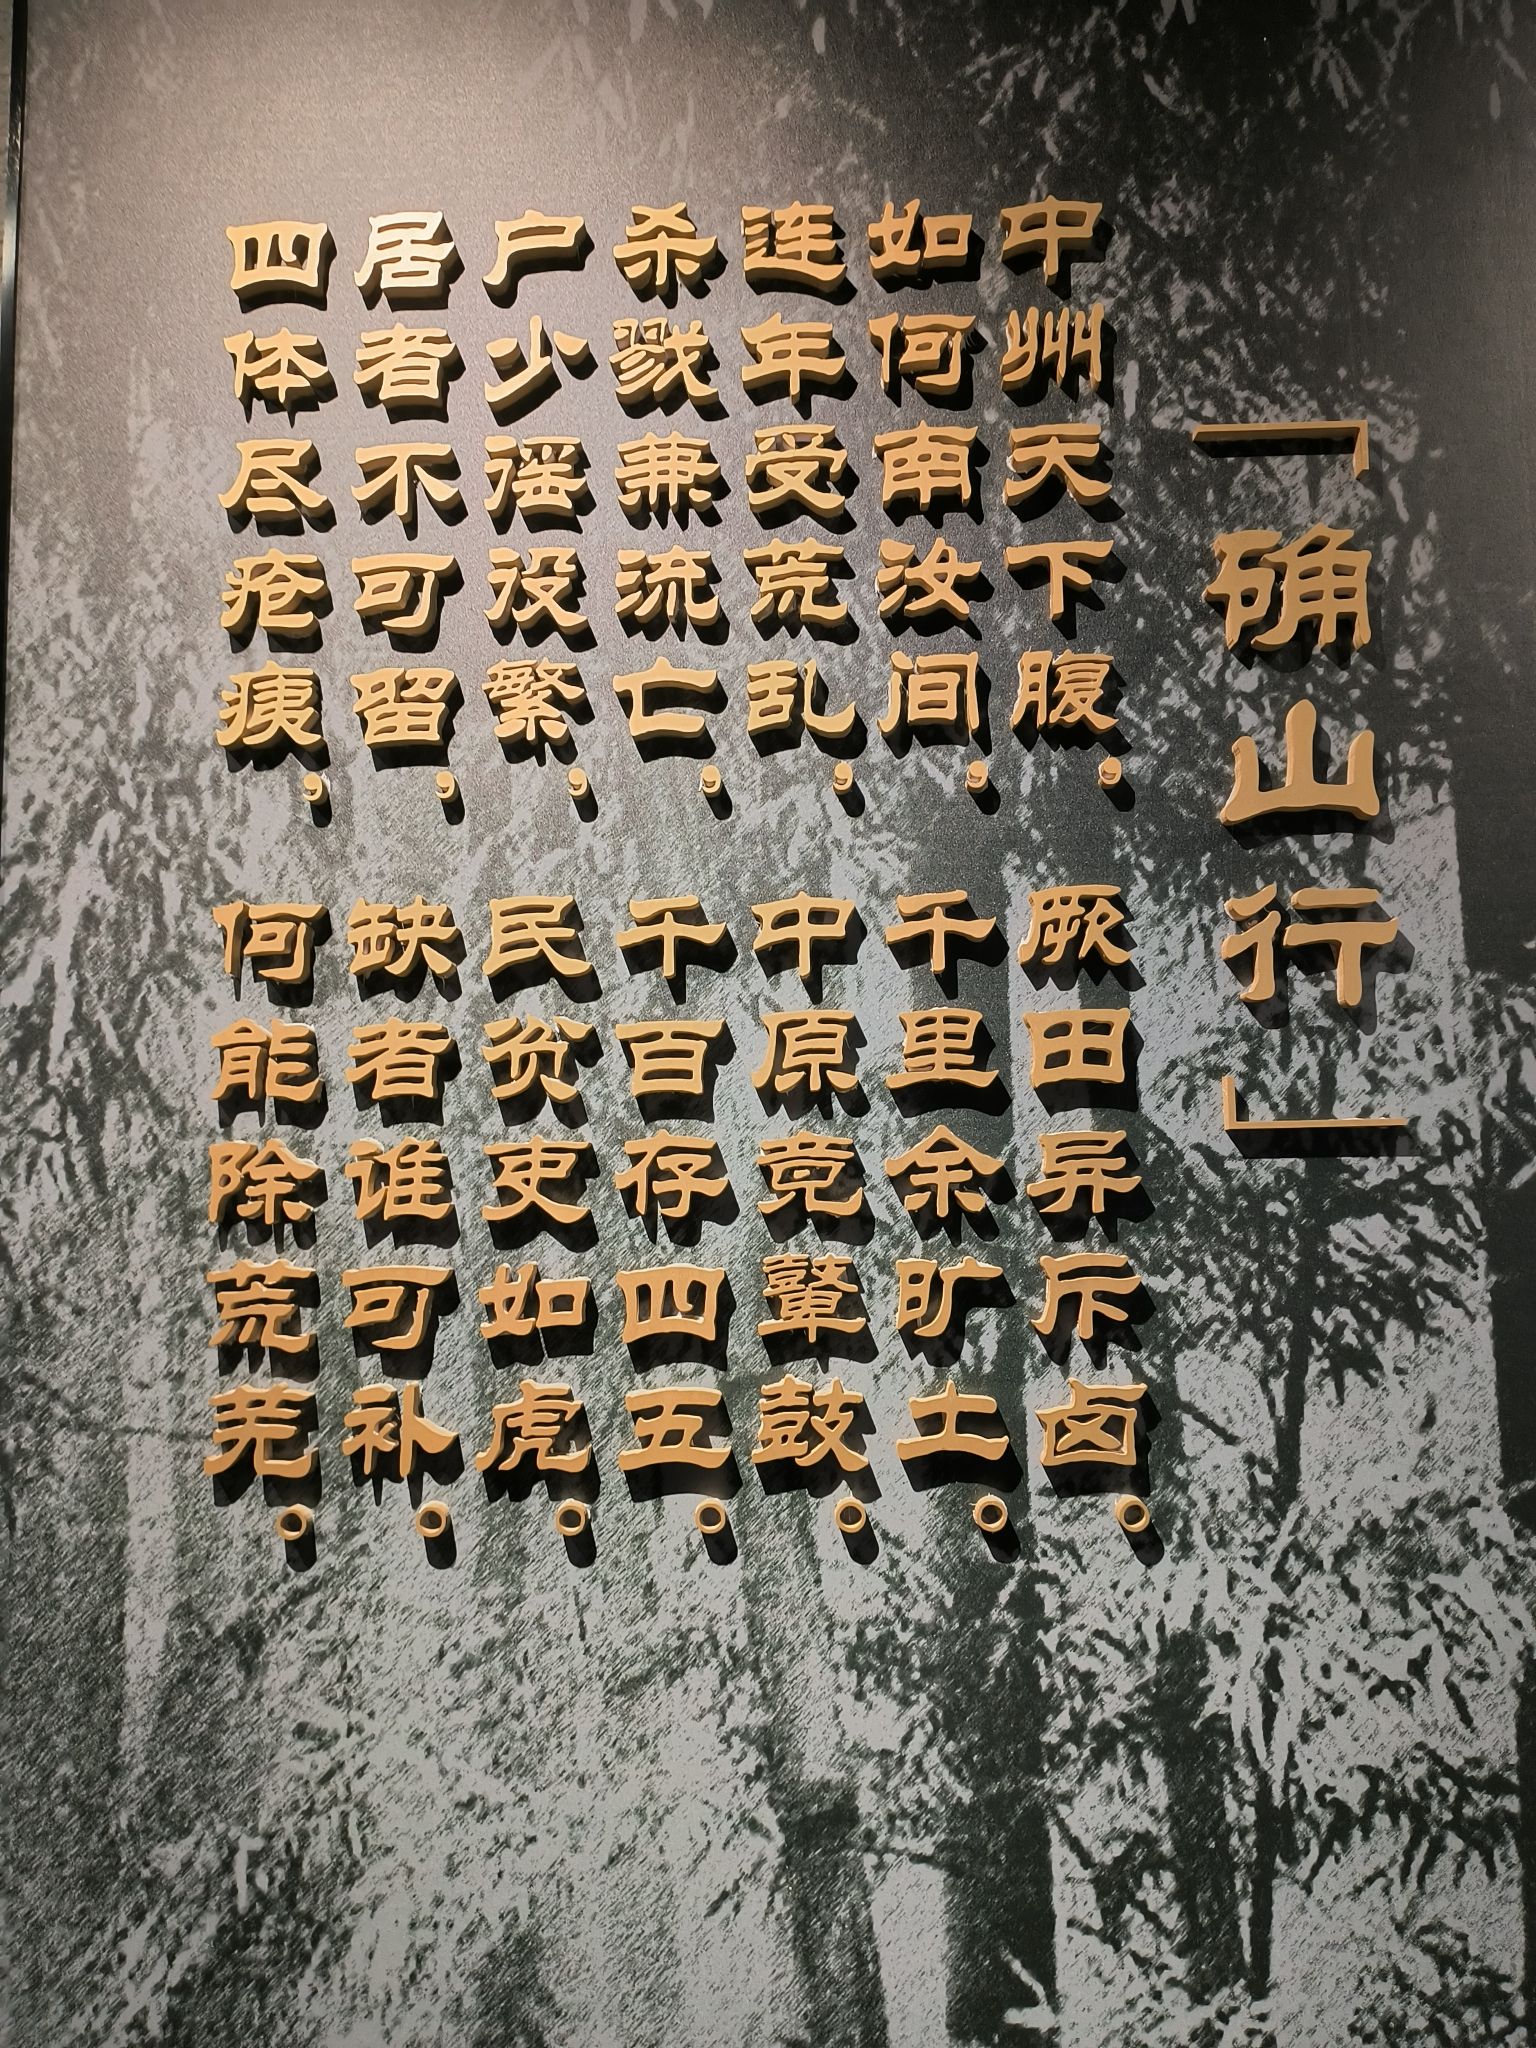 「确山行」
中州天下腹，厥田异斥卤。
如何南汝间，千里余旷土。
连年受荒乱，中原竞鼙鼓。
杀戮兼流亡，千百存四五。
户少谣役繁，民贫吏如虎。
居者不可留，缺者谁可补。
四体尽疮痍，何能除荒芜。